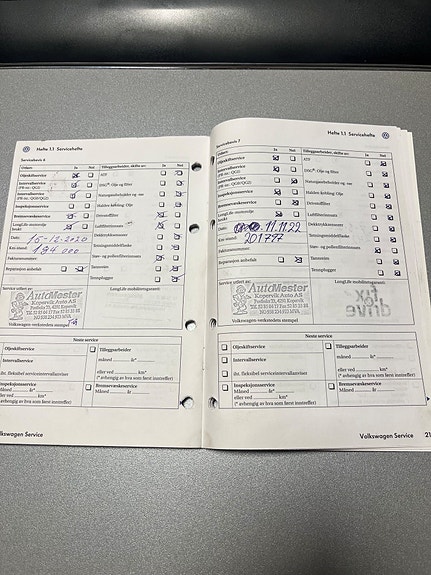 Hefte 1.1 Servicehefte
Servicebevis 6
Utført: Ja Nei
Tilleggsarbeider, skifte av: Ja Nei
Oljeskiftservice
ATF
Intervallservice
(PR-nr.: QG1)
DSG®: Olje og filter
Intervallservice
Inspeksjonsservice
Haldex kobling: Olje
Bremsevæskeservice
Drivstoffilter
Luftfilterinnsats
brukt
Dato: 15-12.2020
Km-stand: 194 000
Fakturanummer:
Støv- og pollenfilterinnsats
Tannreim
Reparasjon anbefalt
Tennplugger
Service utført av:
LongLife mobilitetsgaranti:
AutoMester
Kopervik Auto AS
Volkswagen-verkstedets stempel
Neste service
Oljeskiftservice
Tilleggsarbeider
måned år*
Intervallservice
eller ved km*
iht. fleksibel serviceintervallviser
(* avhengig av hva som først inntreffer)
Inspeksjonsservice
Bremsevæskeservice
måned år*
Måned år
eller ved km*
(* avhengig av hva som først inntreffer)
lkswagen Service
Hefte 1.1 Servicehefte
Servicebevis 7
Utført: Ja Nei
Tilleggsarbeider, skifte av: Ja Nei
Oljeskiftservice
ATF
Intervallservice
DSG®: Olje og filter
Intervallservice
Inspeksjonsservice
Haldex kobling: Olje
Bremsevæskeservice
Drivstoffilter
Luftfilterinnsats
brukt
Dato: 11.11.22
Km-stand: 201777
Fakturanummer:
Støv- og pollenfilterinnsats
Reparasjon anbefalt
Tannreim
Tennplugger
Service utført av:
LongLife mobilitetsgaranti:
AutoMester
Kopervik Auto AS
fox
drive
Volkswagen-verkstedets stempel
Neste service
Oljeskiftservice
Tilleggsarbeider
måned år*
Intervallservice
eller ved km*
iht. fleksibel serviceintervallviser
(* avhengig av hva som først inntreffer)
Inspeksjonsservice
Bremsevæskeservice
måned år*
Måned år
eller ved km*
(* avhengig av hva som først inntreffer)
Volkswagen Service 21